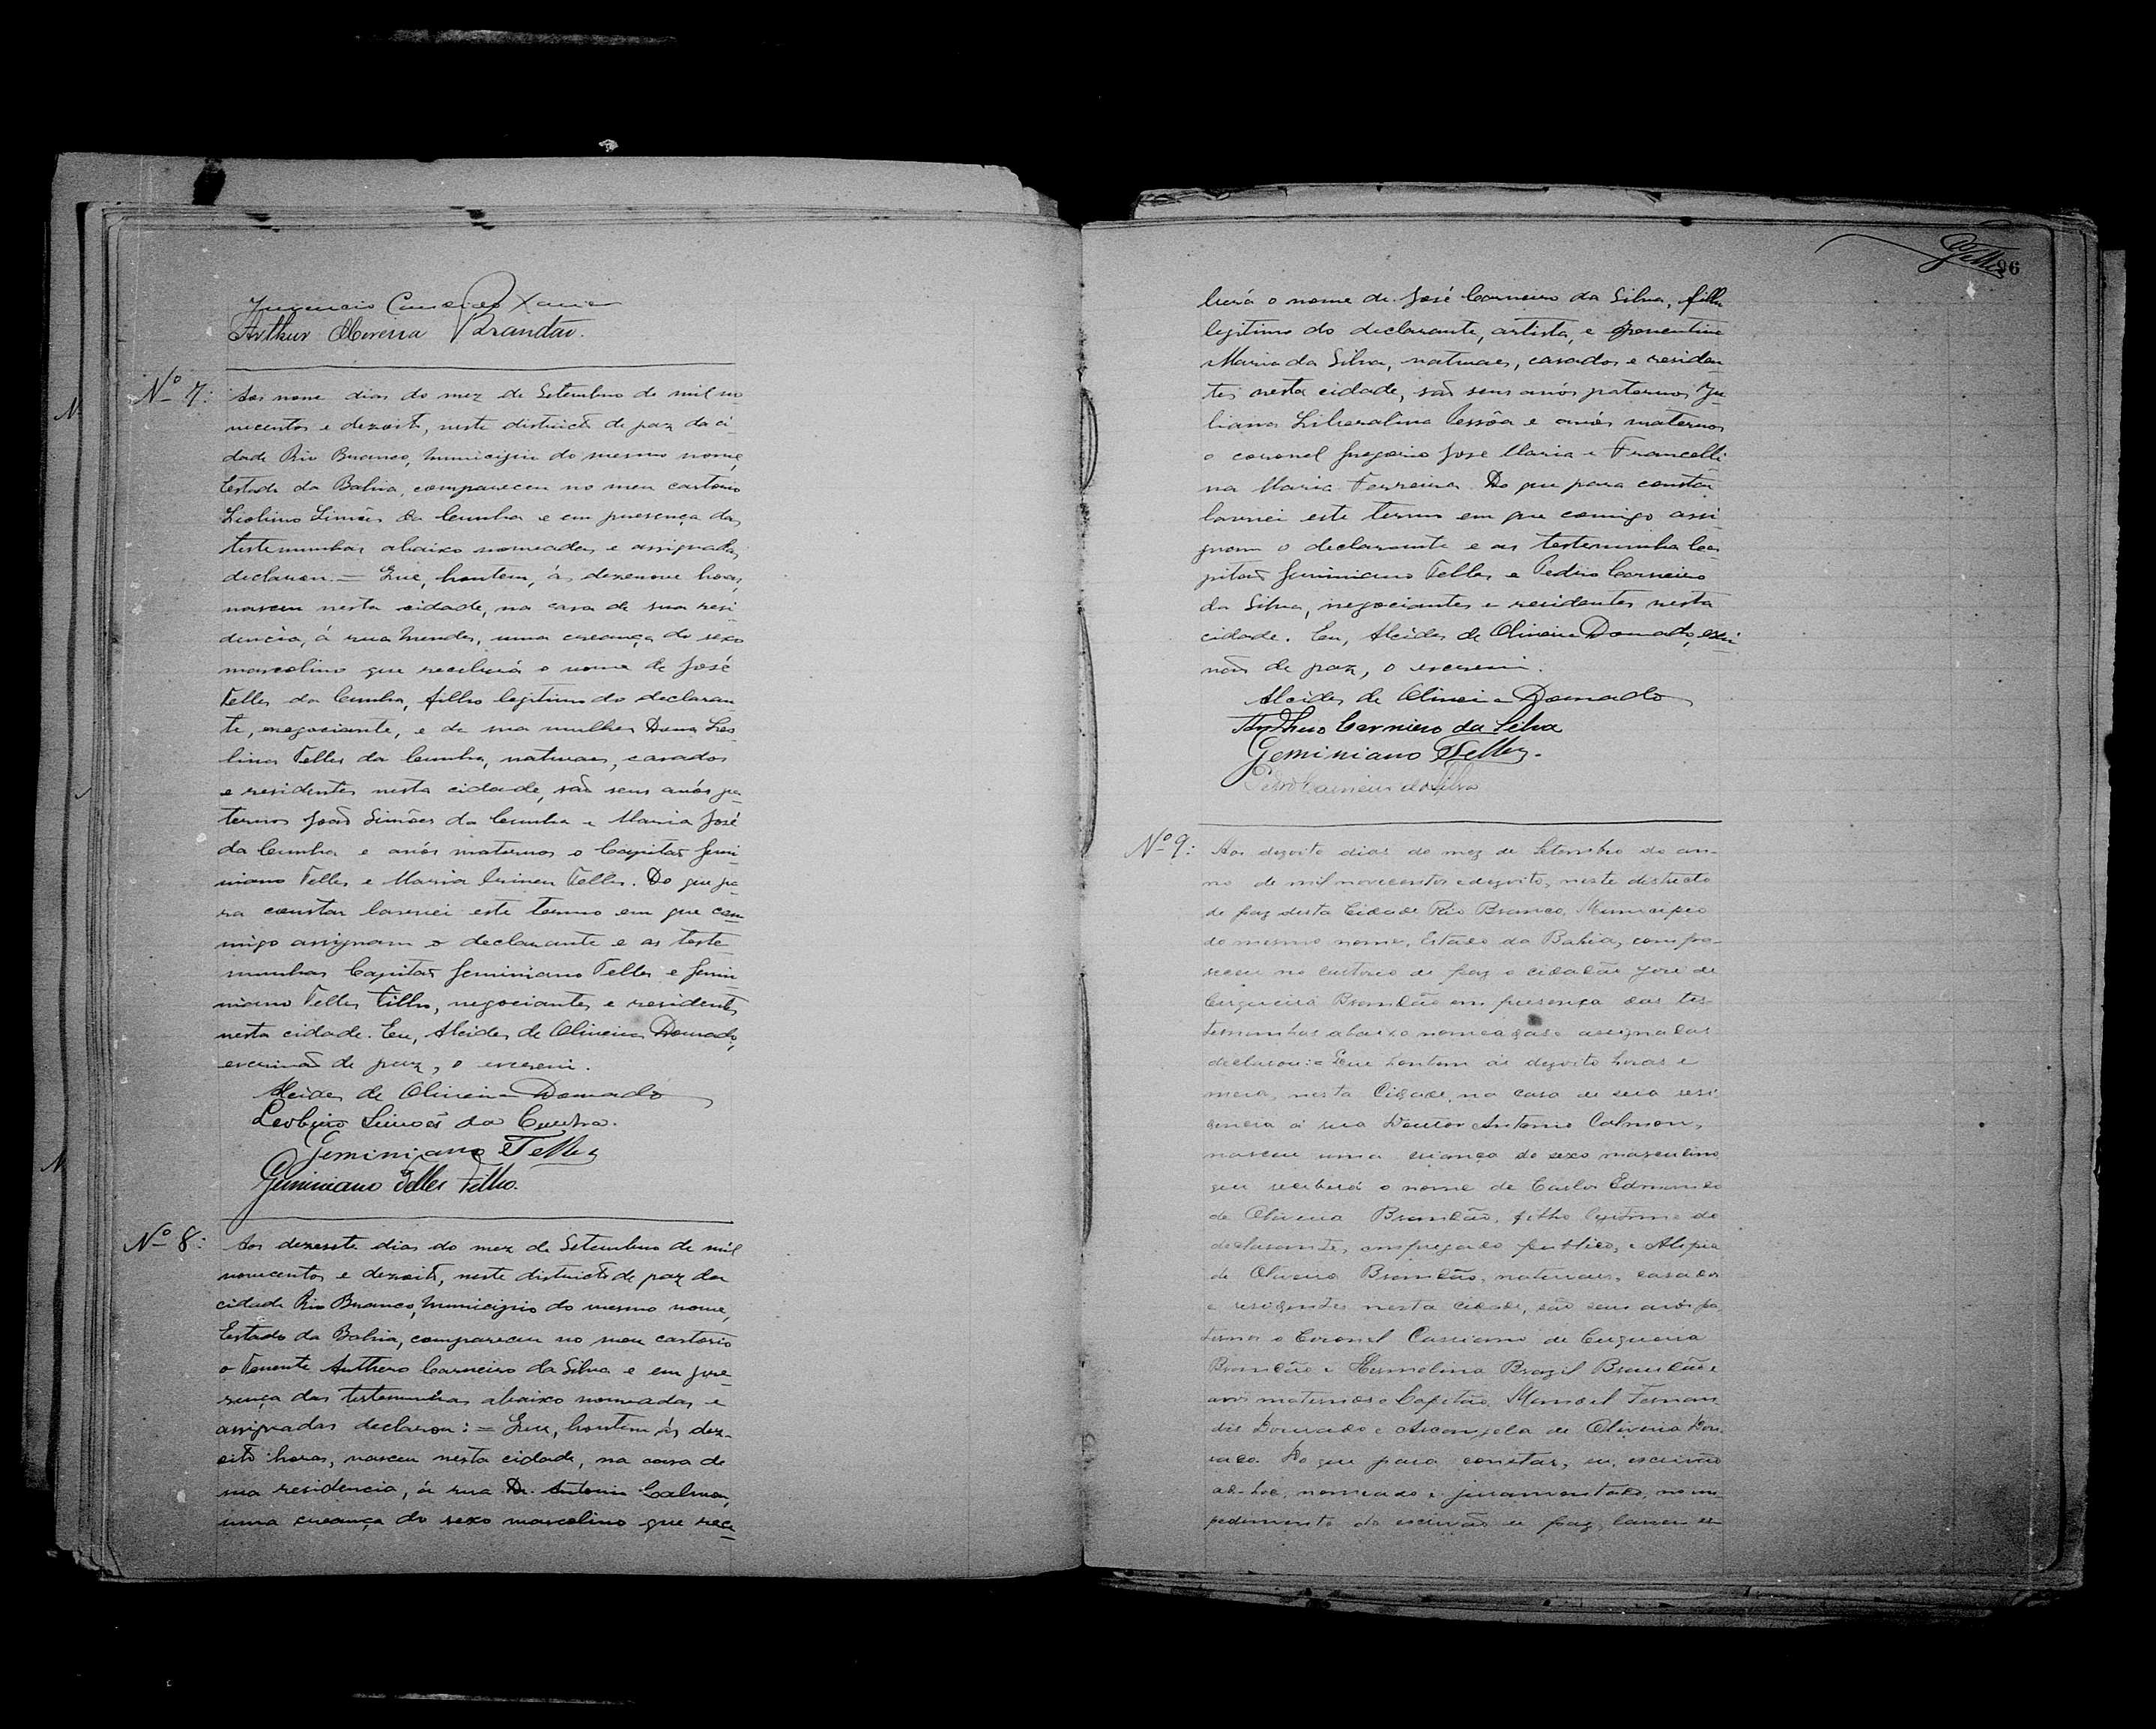 Arthur Moreira Brandão.
Nº 7:
Aos nove dias do mez de Setembro de mil no-
vecentos e dezoito, neste districto de paz da ci-
dade Rio Branco, municipio do mesmo nome,
Estado da Bahia, compareceu no meu cartorio
Leobino Simões da Cunha e em presença das
testemunhas abaixo nomeadas e assignadas,
declarou = Que, hontem, ás dezenove horas,
nasceu nesta cidade, na casa de sua resi-
dencia, á rua Mendes, uma creança do sexo
mascolino que receberá o nome de José
Telles da Cunha, filho legitimo do declaran-
te, negociante, e de sua mulher Dona Leo-
lina Telles da Cunha, naturaes, casados
e residentes nesta cidade, são seus avós pa-
ternos João Simões da Cunha e Maria José
da Cunha e avós maternos o Capitão Gemi-
niano Telles e Maria Telles. Do que pa-
ra constar lavrei este termo em que com-
migo assignam o declarante e as teste-
munhas Capitão Geminiano Telles e Gemi-
niano Telles Filho, negociantes e residentes
nesta cidade. Eu, Alcides de Oliveira Dourado,
escrivão de paz, o escrevi.
Alcides de Oliveira Dourado
Leobino Simões da Cunha.
Geminiano Telles
Geminiano Telles Filho.
Nº 8:
Aos dezesete dias do mez de Setembro de mil
novecentos e dezoito, neste districto de paz da
cidade Rio Branco, municipio do mesmo nome,
Estado da Bahia, compareceu no meu cartorio
o Tenente Anthero Carneiro da Silva e em pre-
sença das testemunhas abaixo nomeadas e
assignadas declarou: = Que, hontem, ás dez-
oito horas, nasceu nesta cidade, na casa de
sua residencia, á rua Dr. Antonio Calmon,
uma creança do sexo mascolino que rece-
96
berá o nome de José Carneiro da Silva, filho
legitimo do declarante, artista, e
Maria da Silva, naturaes, casados e residen-
tes nesta cidade, são seus avós paternos Ju-
liana Liberalina Pessôa e avós maternos
o coronel Gregorio José Maria e Francelli-
na Maria Ferreira. Do que para constar
lavrei este termo em que comigo assi-
gnam o declarante e as testemunha Ca-
pitão Geminiano Telles e Pedro Carneiro
da Silva, negociantes e residentes nesta
cidade. Eu, Alcides de Oliveira Dourado, escri-
vão de paz, o escrevi.
Alcides de Oliveira Dourado
Anthero Carneiro da Silva
Geminiano Telles.
Pedro Carneiro da Silva
Nº 9:
Aos dezoito dias do mez de Setembro do an-
no de mil novecentos e dezoito, neste destricto
de paz desta Cidade Rio Branco, Municipio
do mesmo nome, Estado da Bahia, compa-
receu no cartorio de paz o cidadão José de
Cerqueira Brandão em presença das tes-
temunhas abaixo nomeadas e assignadas
declarou: = Que hontem ás dezoito horas e
meia, nesta Cidade, na casa de sua resi-
dencia á rua Doutor Antonio Calmon,
nasceu uma criança do sexo masculino
que receberá o nome de Carlos Edmundo
de Oliveira Brandão, filho legitimo do
declarante, empregado publico, e Alipia
de Oliveira Brandão, naturaes, casados
e residentes nesta cidade, são seus avós pa-
ternos o Coronel Cassiano de Cerqueira
Brandão e Hermelina Brazil Brandão e
avós maternos o Capitão Manoel Fernan-
des Dourado e Archangela de Oliveira Dou-
rado. Do que para constar, eu, escrivão
ad-hoc, nomeado e juramentado, no im-
pedimento do escrivão de paz, lavrei es-